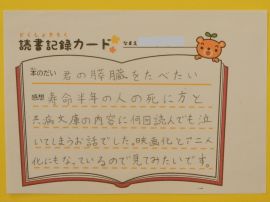 どくしょきろく
読書記録カード
なまえ
本のだい 君の膵臓をたべたい
感想 寿命半年の人の死に方と
共病文庫の内容に何回読んでも泣
いてしまうお話でした。映画化とアニメ
化にもなっているので見てみたいです。